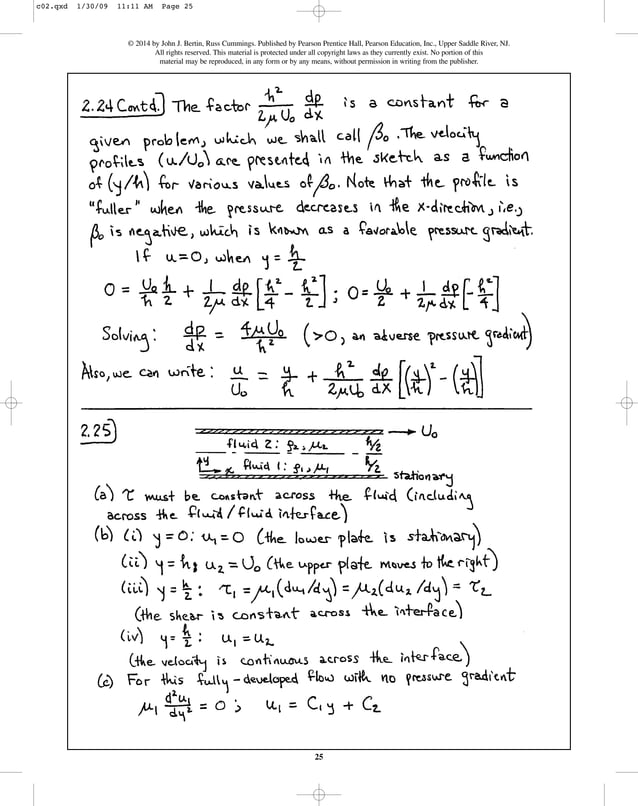 c02.qxd 1/30/09 11:11 AM Page 25
© 2014 by John J. Bertin, Russ Cummings. Published by Pearson Prentice Hall, Pearson Education, Inc., Upper Saddle River, NJ.
All rights reserved. This material is protected under all copyright laws as they currently exist. No portion of this
material may be reproduced, in any form or by any means, without permission in writing from the publisher.
2.24 Contd.] The factor h²/(2μU₀) dp/dx is a constant for a
given problem, which we shall call β₀. The velocity
profiles (u/U₀) are presented in the sketch as a function
of (y/h) for various values of β₀. Note that the profile is
"fuller" when the pressure decreases in the x-direction, i.e.,
β₀ is negative, which is known as a favorable pressure gradient.
If u=0, when y = h/2
0 = U₀/h h/2 + 1/(2μ) dp/dx [h²/4 - h²/2] ; 0 = U₀/2 + 1/(2μ) dp/dx [-h²/4]
Solving: dp/dx = 4μU₀/h² (>0, an adverse pressure gradient)
Also, we can write: u/U₀ = y/h + h²/(2μU₀) dp/dx [(y/h)² - (y/h)]
2.25]
→ U₀
fluid 2: ρ₂, μ₂ h/2
y x fluid 1: ρ₁, μ₁ h/2
stationary
(a) τ must be constant across the fluid (including
across the fluid/fluid interface)
(b) (i) y=0: u₁=0 (the lower plate is stationary)
(ii) y=h; u₂=U₀ (the upper plate moves to the right)
(iii) y=h/2: τ₁ = μ₁(du₁/dy) = μ₂(du₂/dy) = τ₂
(the shear is constant across the interface)
(iv) y=h/2: u₁=u₂
(the velocity is continuous across the interface)
(c) For this fully-developed flow with no pressure gradient
μ₁ d²u₁/dy² = 0 ; u₁ = C₁y + C₂
25